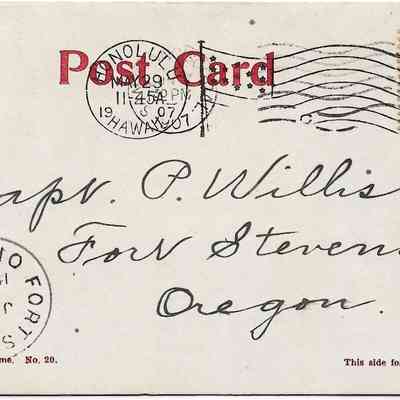 Post Card
HONOLULU
MAY 29
11-45A
1907
HAWAII
apt. P. Willis
Fort Stevens
Oregon.
FORT S
me, No. 20.
This side fo